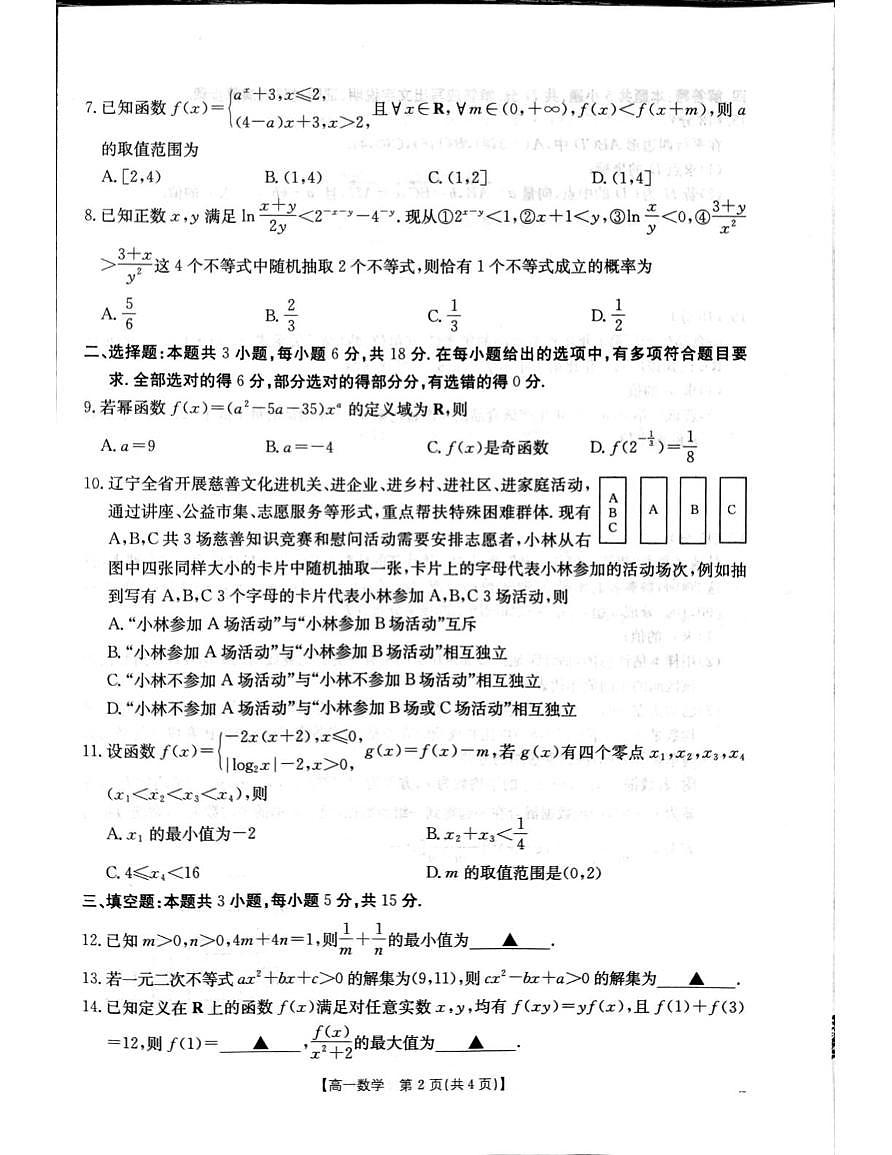 7. 已知函数 f(x)={a^x+3,x≤2, (4-a)x+3,x>2, 且∀x∈R,∀m∈(0,+∞),f(x)<f(x+m),则 a
的取值范围为
A. [2,4) B. (1,4) C. (1,2] D. (1,4]
8. 已知正数 x,y 满足 ln (x+y)/(2y)<2^(-x-y)-4^(-y). 现从①2^(x-y)<1,②x+1<y,③ln x/y<0,④(3+y)/x²
>(3+x)/y² 这 4 个不等式中随机抽取 2 个不等式,则恰有 1 个不等式成立的概率为
A. 5/6 B. 2/3 C. 1/3 D. 1/2
二、选择题:本题共 3 小题,每小题 6 分,共 18 分. 在每小题给出的选项中,有多项符合题目要
求. 全部选对的得 6 分,部分选对的得部分分,有选错的得 0 分.
9. 若幂函数 f(x)=(a²-5a-35)x^a 的定义域为 R,则
A. a=9 B. a=-4 C. f(x)是奇函数 D. f(2^(-1/3))=1/8
10. 辽宁全省开展慈善文化进机关、进企业、进乡村、进社区、进家庭活动,
通过讲座、公益市集、志愿服务等形式,重点帮扶特殊困难群体. 现有
A,B,C 共 3 场慈善知识竞赛和慰问活动需要安排志愿者,小林从右
A
B
C
A
B
C
图中四张同样大小的卡片中随机抽取一张,卡片上的字母代表小林参加的活动场次,例如抽
到写有 A,B,C 3 个字母的卡片代表小林参加 A,B,C 3 场活动,则
A. “小林参加 A 场活动”与“小林参加 B 场活动”互斥
B. “小林参加 A 场活动”与“小林参加 B 场活动”相互独立
C. “小林不参加 A 场活动”与“小林不参加 B 场活动”相互独立
D. “小林不参加 A 场活动”与“小林参加 B 场或 C 场活动”相互独立
11. 设函数 f(x)={-2x(x+2),x≤0, |log₂x|-2,x>0, g(x)=f(x)-m,若 g(x)有四个零点 x₁,x₂,x₃,x₄
(x₁<x₂<x₃<x₄),则
A. x₁ 的最小值为-2 B. x₂+x₃<1/4
C. 4≤x₄<16 D. m 的取值范围是(0,2)
三、填空题:本题共 3 小题,每小题 5 分,共 15 分.
12. 已知 m>0,n>0,4m+4n=1,则1/m+1/n的最小值为 ▲ .
13. 若一元二次不等式 ax²+bx+c>0 的解集为(9,11),则 cx²-bx+a>0 的解集为 ▲ .
14. 已知定义在 R 上的函数 f(x)满足对任意实数 x,y,均有 f(xy)=yf(x),且 f(1)+f(3)
=12,则 f(1)= ▲ ,f(x)/(x²+2)的最大值为 ▲ .
【高一数学 第 2 页(共 4 页)】